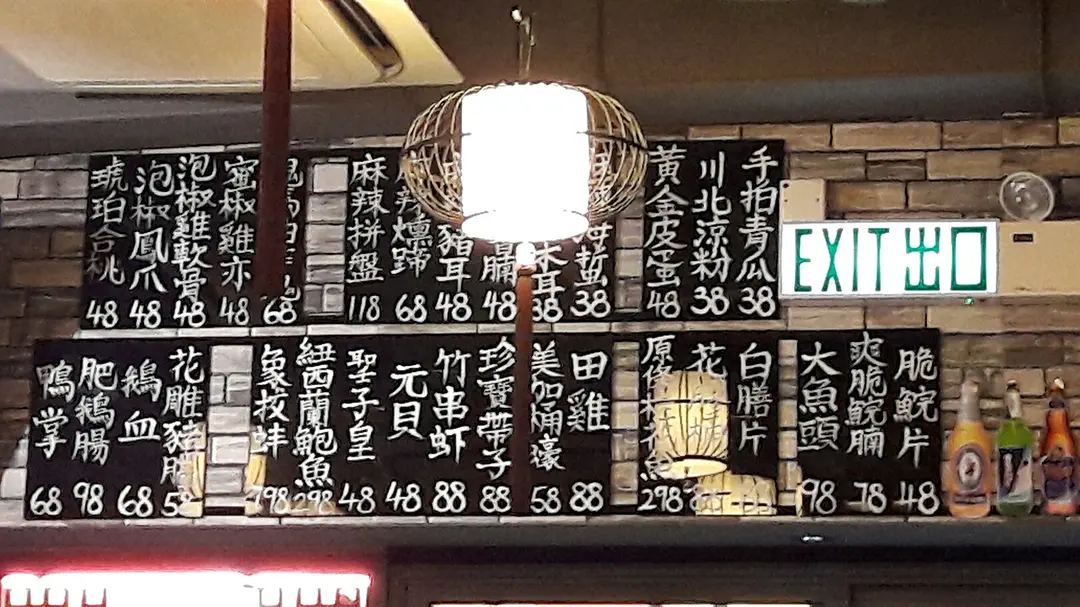 手拍青瓜 38
川北涼粉 38
黃金皮蛋 48
蜇 38
木耳 38
48
豬耳 48
辣燻蹄 68
麻辣拼盤 118
68
蜜椒雞亦 48
泡椒雞軟骨 48
泡椒鳳爪 48
琥珀合桃 48
EXIT 出口
脆鯇片 48
爽脆鯇腩 78
大魚頭 98
白膳片
花
原條花魚 298
田雞 88
美加桶濠 58
珍寶帶子 88
竹串虾 88
元貝 48
聖子皇 48
紐西蘭鮑魚 298
象拔蚌 798
花雕豬膶 58
鵝血 68
肥鵝腸 98
鴨掌 68